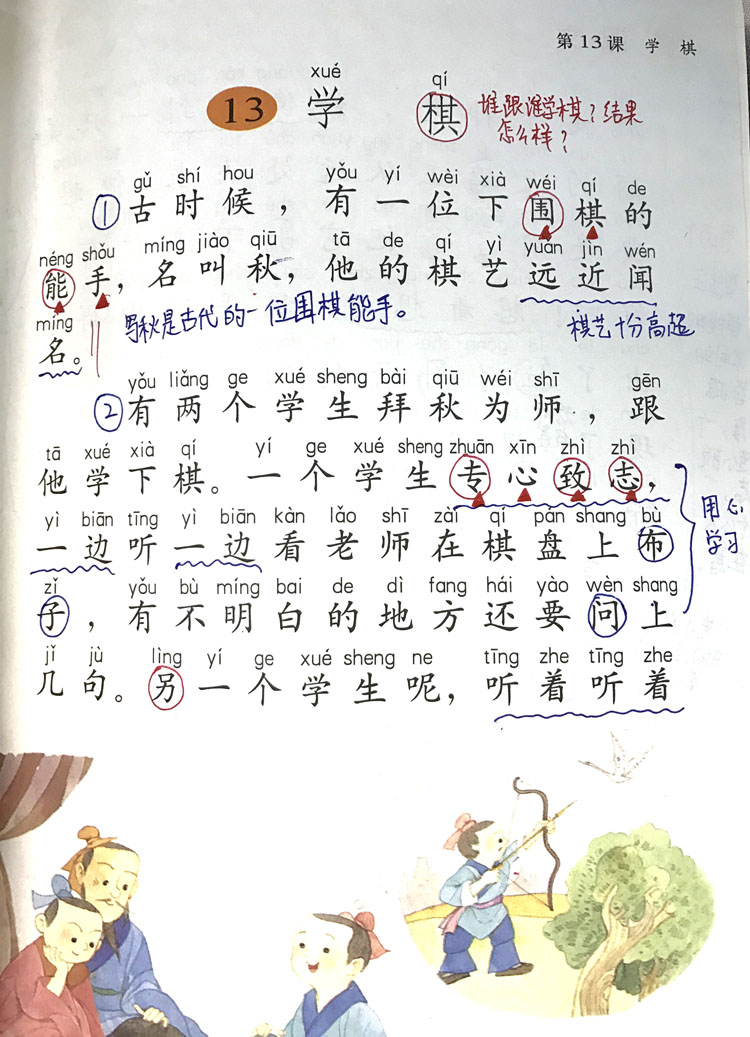 第13课 学 棋
xué qí
13 学 棋
谁跟谁学棋？结果
怎么样？
gǔ shí hou yǒu yí wèi xià wéi qí de
①古时候，有一位下围棋的
néng shǒu míng jiào qiū tā de qí yì yuǎn jìn wén
能手，名叫秋，他的棋艺远近闻
míng
名。
写秋是古代的一位围棋能手。
棋艺十分高超
yǒu liǎng ge xué sheng bài qiū wéi shī gēn
②有两个学生拜秋为师，跟
tā xué xià qí yí ge xué sheng zhuān xīn zhì zhì
他学下棋。一个学生专心致志，
yì biān tīng yì biān kàn lǎo shī zài qí pán shang bù
一边听一边看老师在棋盘上布
用心
学习
zǐ yǒu bù míng bai de dì fang hái yào wèn shang
子，有不明白的地方还要问上
jǐ jù lìng yí ge xué sheng ne tīng zhe tīng zhe
几句。另一个学生呢，听着听着